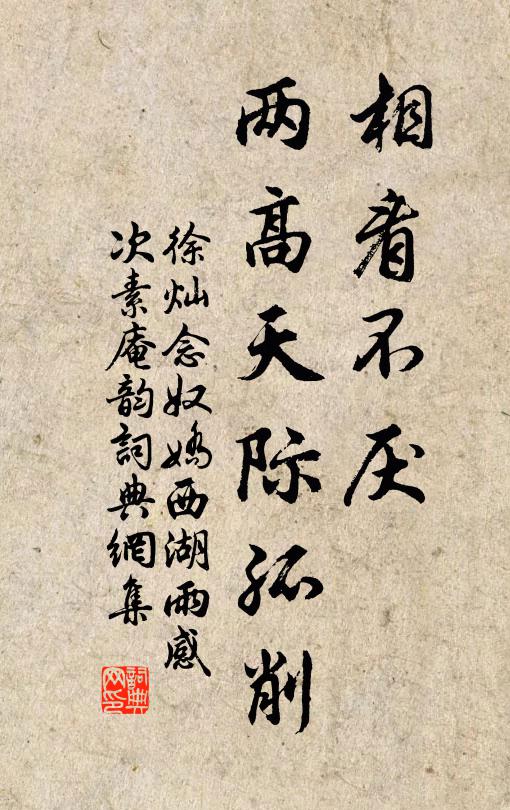 相看不厌
两高天际孤削
徐灿念奴娇西湖雨感
次素庵韵詞典網集
詞典
网印